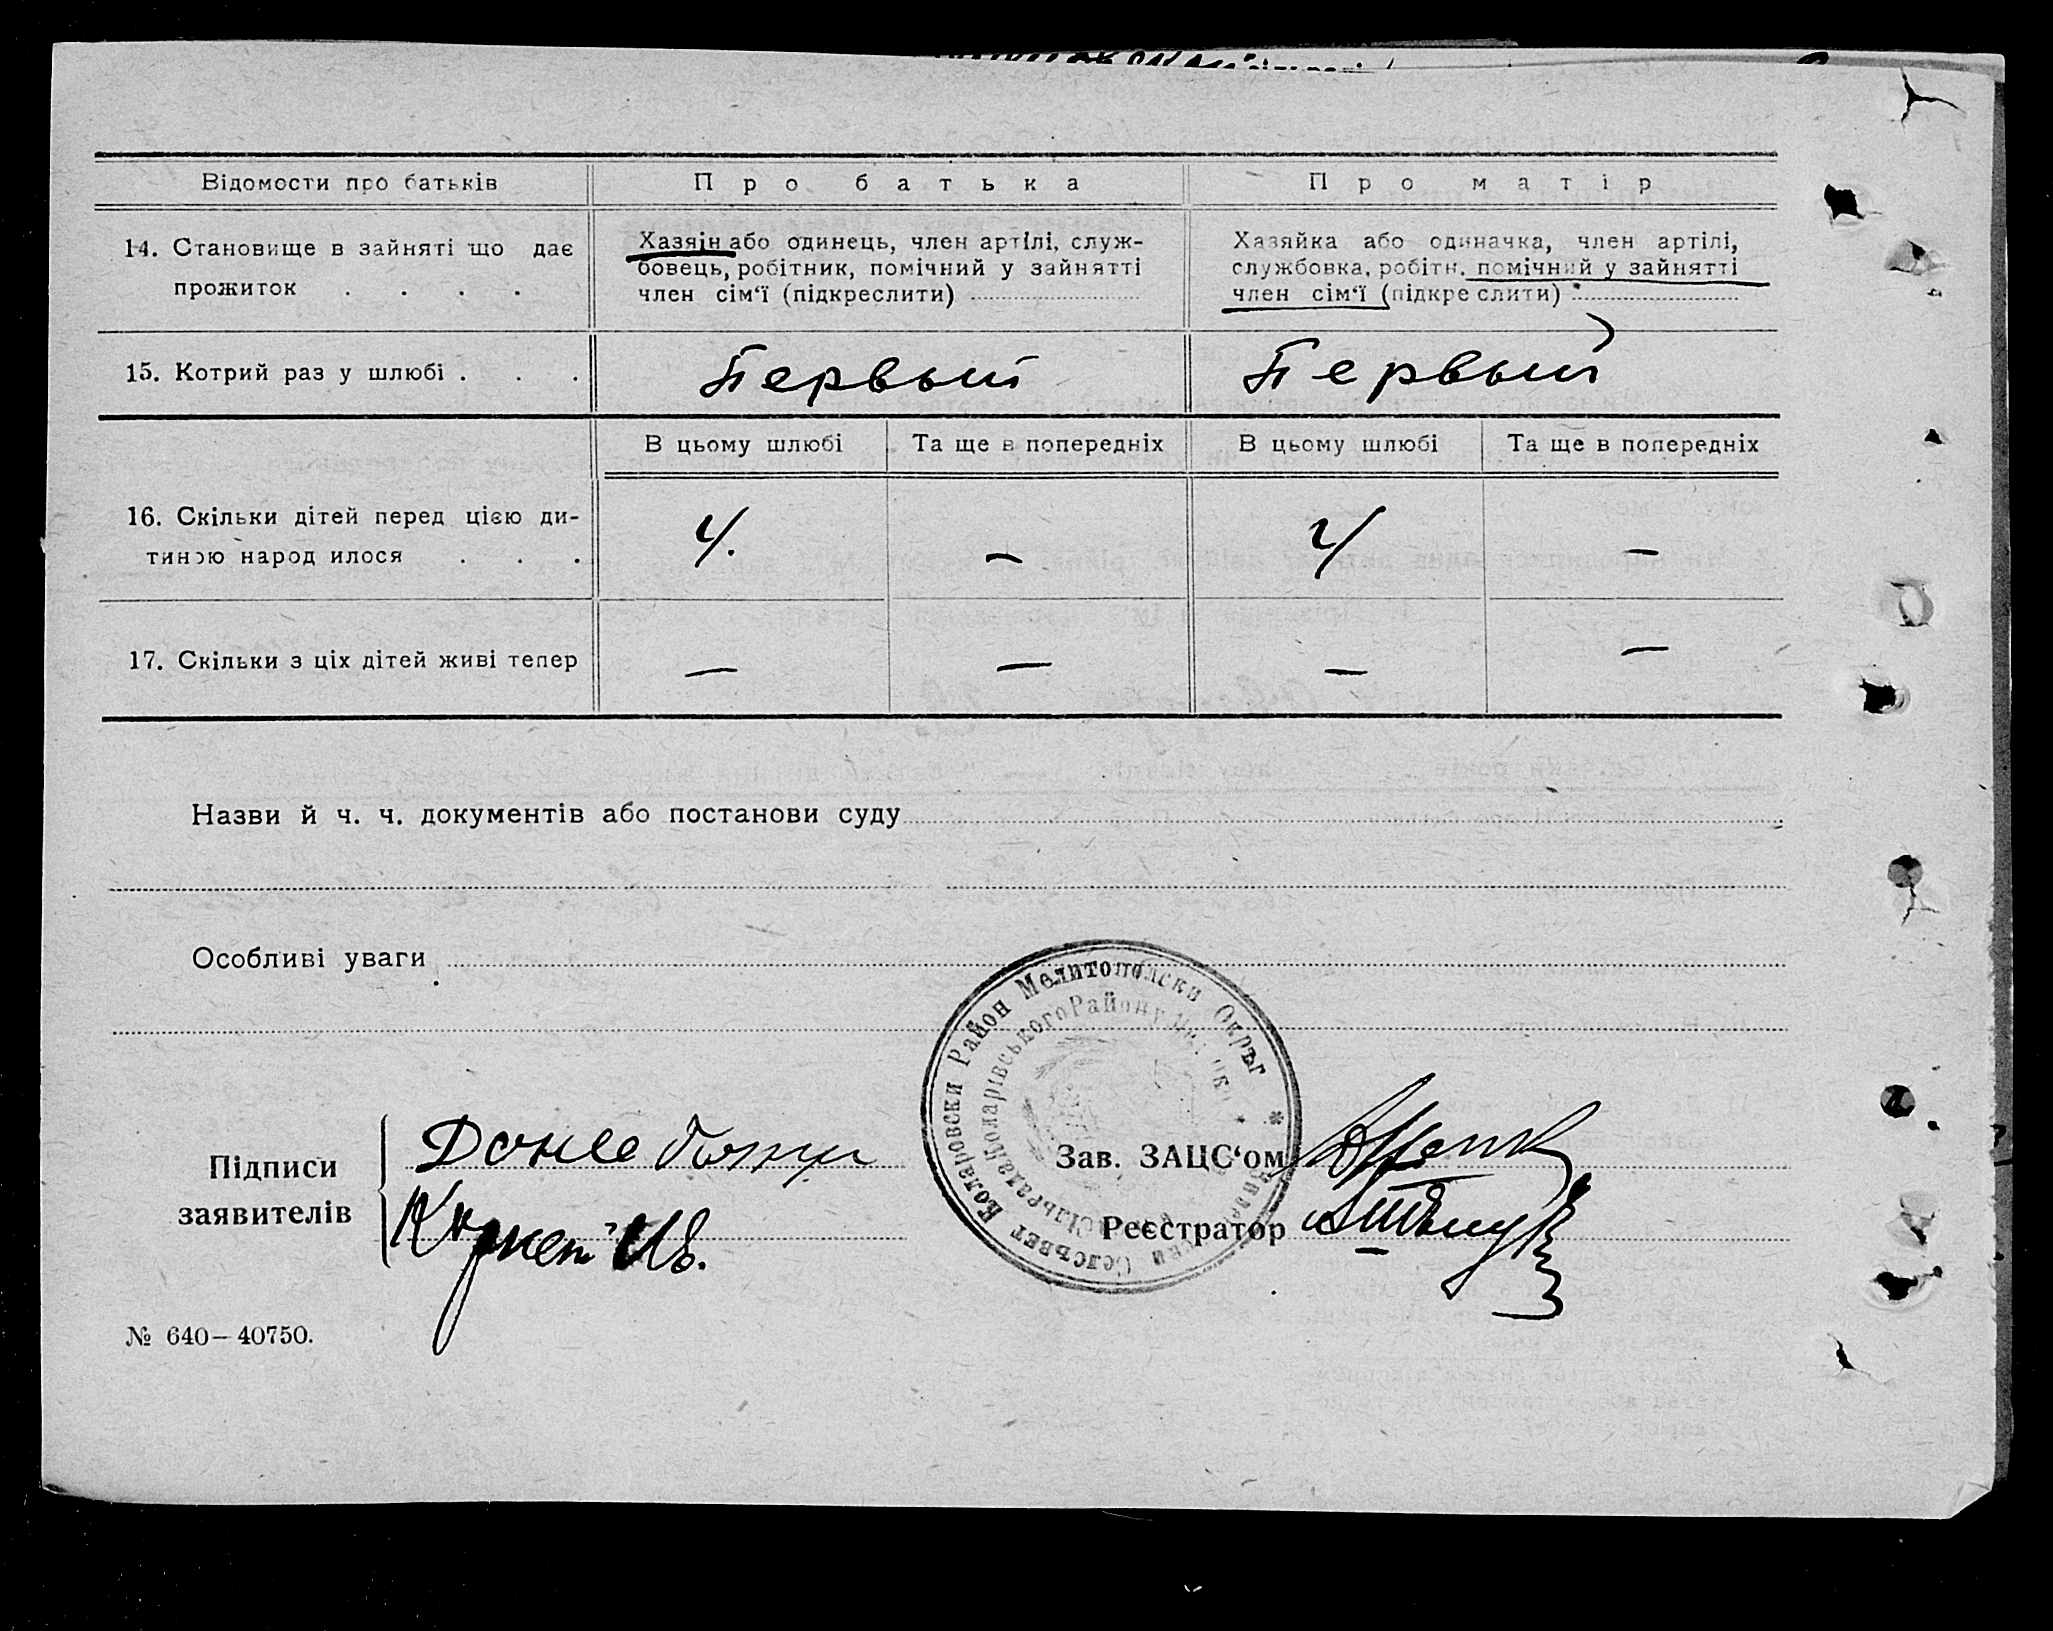 Відомости про батьків
Про батька
Про матір
14. Становище в зайняті що дає
прожиток . . . .
Хазяїн або одинець, член артілі, служ-
бовець, робітник, помічний у зайнятті
член сім‘ї (підкреслити)
Хазяйка або одиначка, член артілі,
службовка, робітн. помічний у зайнятті
член сім‘ї (підкреслити)
15. Котрий раз у шлюбі . . .
Первый
Первый
В цьому шлюбі
Та ще в попередніх
В цьому шлюбі
Та ще в попередніх
16. Скільки дітей перед цією ди-
тиною народилося . . .
4.
—
4
—
17. Скільки з ціх дітей живі тепер
—
—
—
—
Назви й ч. ч. документів або постанови суду
Особливі уваги
Коларовски Район Мелитополски Окръг *
Селсъвет
Коларівського Району
Підписи
заявителів
Зав. ЗАЦС‘ом
Реєстратор
№ 640—40750.